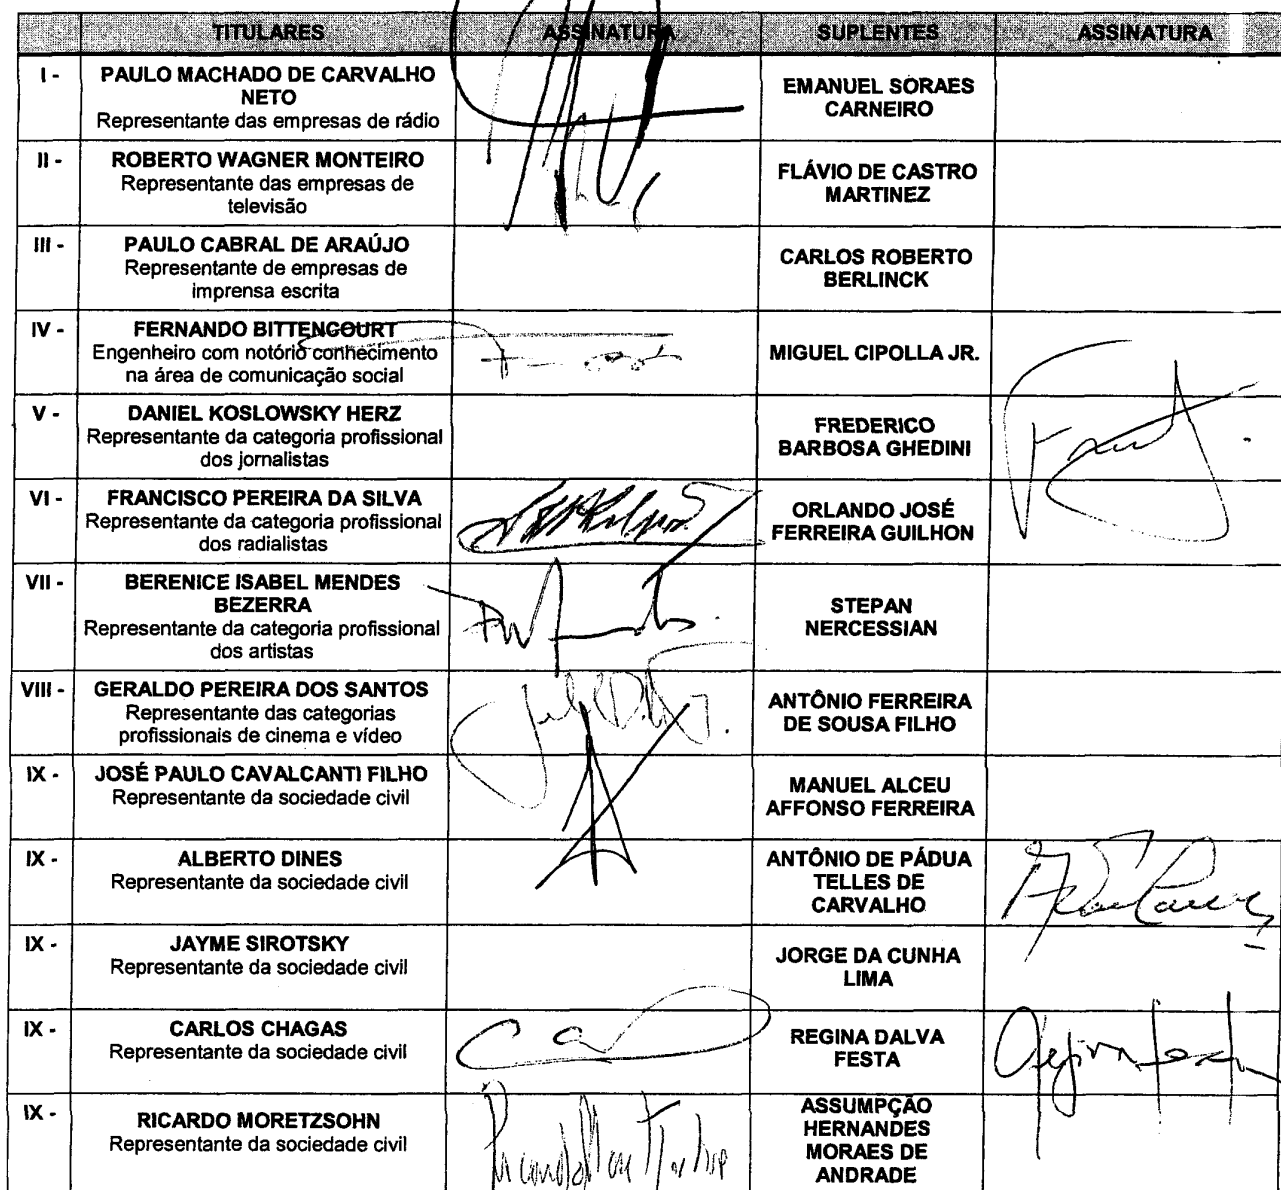 TITULARES ASSINATURA SUPLENTES ASSINATURA
I - PAULO MACHADO DE CARVALHO NETO
Representante das empresas de rádio
EMANUEL SORAES CARNEIRO
II - ROBERTO WAGNER MONTEIRO
Representante das empresas de
televisão
FLÁVIO DE CASTRO
MARTINEZ
III - PAULO CABRAL DE ARAÚJO
Representante de empresas de
imprensa escrita
CARLOS ROBERTO
BERLINCK
IV - FERNANDO BITTENCOURT
Engenheiro com notório conhecimento
na área de comunicação social
MIGUEL CIPOLLA JR.
V - DANIEL KOSLOWSKY HERZ
Representante da categoria profissional
dos jornalistas
FREDERICO
BARBOSA GHEDINI
VI - FRANCISCO PEREIRA DA SILVA
Representante da categoria profissional
dos radialistas
ORLANDO JOSÉ
FERREIRA GUILHON
VII - BERENICE ISABEL MENDES
BEZERRA
Representante da categoria profissional
dos artistas
STEPAN
NERCESSIAN
VIII - GERALDO PEREIRA DOS SANTOS
Representante das categorias
profissionais de cinema e vídeo
ANTÔNIO FERREIRA
DE SOUSA FILHO
IX - JOSÉ PAULO CAVALCANTI FILHO
Representante da sociedade civil
MANUEL ALCEU
AFFONSO FERREIRA
IX - ALBERTO DINES
Representante da sociedade civil
ANTÔNIO DE PÁDUA
TELLES DE
CARVALHO
IX - JAYME SIROTSKY
Representante da sociedade civil
JORGE DA CUNHA
LIMA
IX - CARLOS CHAGAS
Representante da sociedade civil
REGINA DALVA
FESTA
IX - RICARDO MORETZSOHN
Representante da sociedade civil
ASSUMPÇÃO
HERNANDES
MORAES DE
ANDRADE